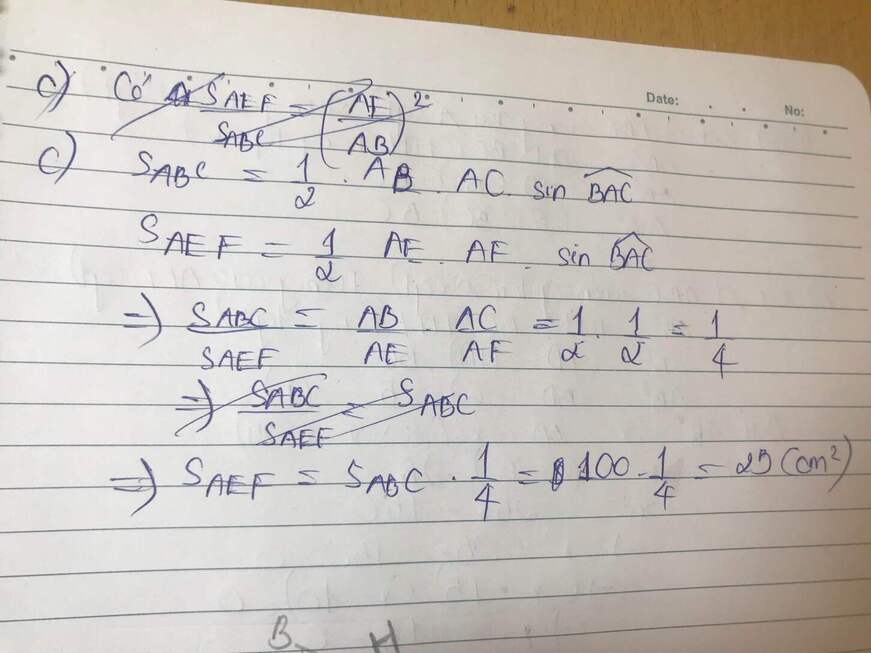 c) Có S_AEF / S_ABC = (AF / AB)²
Date: No:
c) S_ABC = 1/2 . AB . AC . sin BAC
S_AEF = 1/2 AE . AF . sin BAC
=> S_ABC / S_AEF = AB / AE . AC / AF = 1/2 . 1/2 = 1/4
=> S_ABC / S_AEF = S_ABC
=> S_AEF = S_ABC . 1/4 = 100 . 1/4 = 25 (cm²)
B H